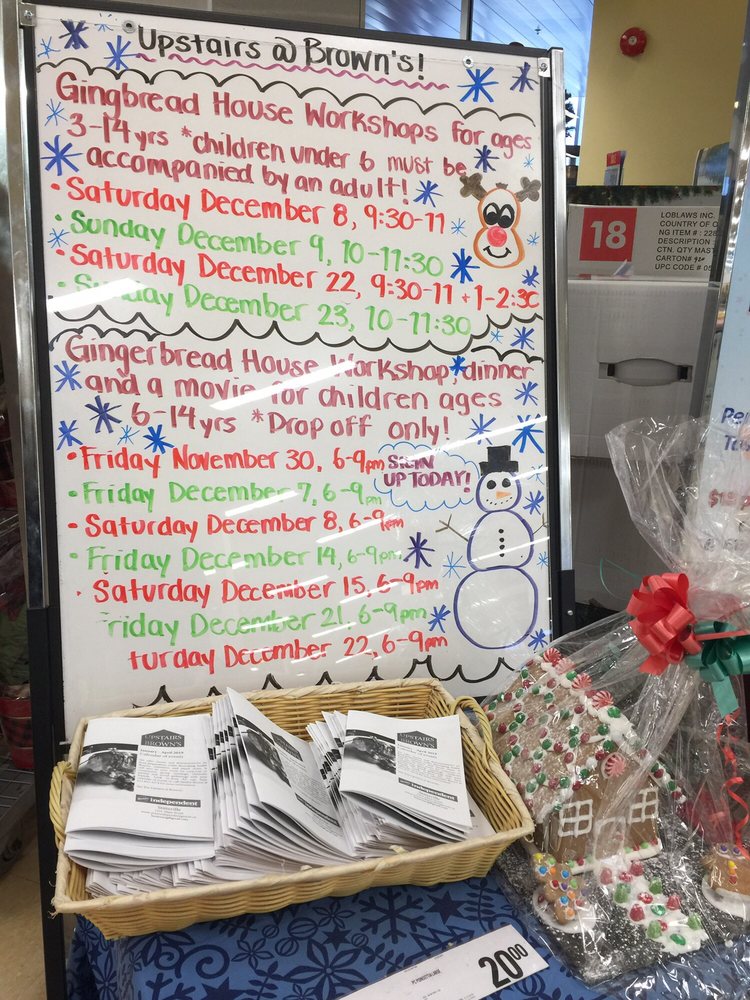 Upstairs @ Brown's!
Gingbread House Workshops for ages
3-14 yrs *children under 6 must be
accompanied by an adult!
• Saturday December 8, 9:30-11
• Sunday December 9, 10-11:30
• Saturday December 22, 9:30-11 + 1-2:30
• Sunday December 23, 10-11:30
Gingerbread House Workshop, dinner
and a movie for children ages
6-14 yrs *Drop off only!
• Friday November 30, 6-9pm
• Friday December 7, 6-9pm
• Saturday December 8, 6-9pm
• Friday December 14, 6-9pm
• Saturday December 15, 6-9pm
Friday December 21, 6-9pm
turday December 22, 6-9pm
SIGN
UP TODAY!
18
LOBLAWS INC.
COUNTRY OF O
NG ITEM # : 228
DESCRIPTION :
CTN. QTY MAST
CARTON#
UPC CODE # 05
UPSTAIRS
BROWN'S
January - April 2019
Calendar of events
Independent
Stittsville
UPSTAIRS
BROWN'S
Independent
20.00